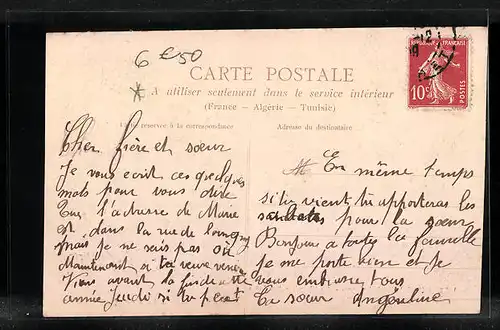 6 €50
CARTE POSTALE
A utiliser seulement dans le service intérieur
(France - Algérie - Tunisie)
Partie réservée à la correspondance
Adresse du destinataire
RÉPUBLIQUE FRANÇAISE
10c
Cher frère et sœur
Je vous ecrit ces quelques
mots pour vous dire
Que l'adresse de Marie
est dans la rue de
mais je ne sais pas ou
Maintenant si tu veux venir
Viens avant la fin de
année jeudi si tu peut
En même temps
si tu vient tu apporteras les
pour la sœur
Bonjour a toutes la famille
je me porte bien et je
vous embrasse tous
Ta sœur Angéline